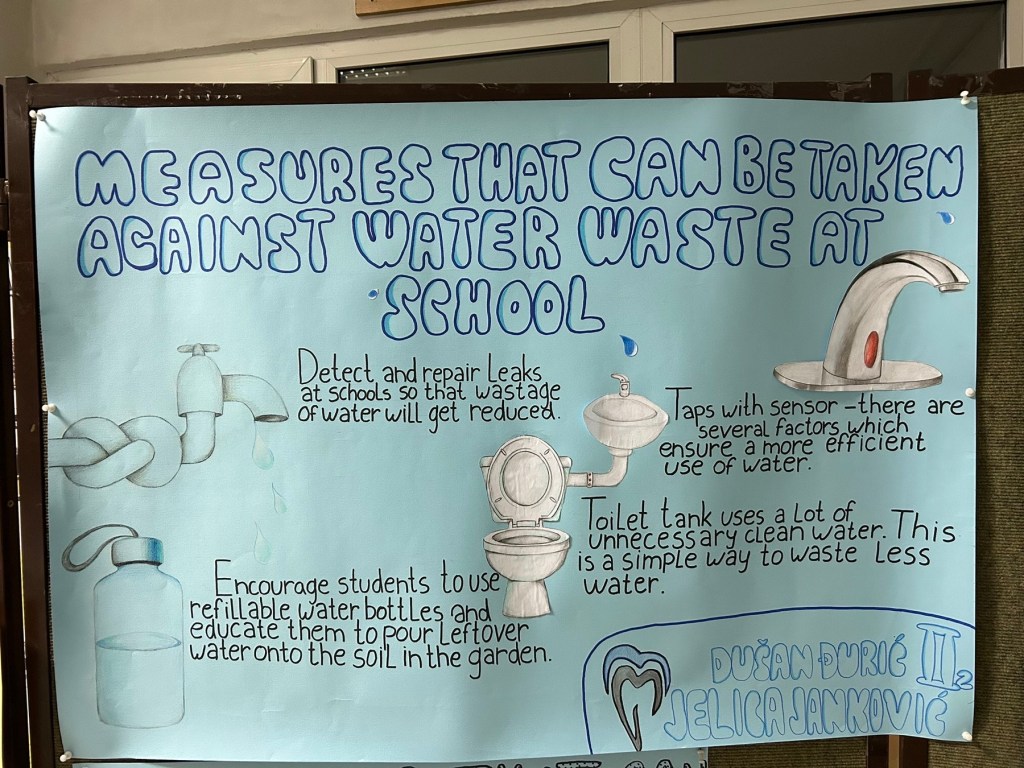 MEASURES THAT CAN BE TAKEN
AGAINST WATER WASTE AT
SCHOOL
Detect and repair Leaks
at schools so that wastage
of water will get reduced.
Taps with sensor - there are
several factors which
ensure a more efficient
use of water.
Toilet tank uses a lot of
unnecessary clean water. This
is a simple way to waste less
water.
Encourage students to use
refillable water bottles and
educate them to pour leftover
water onto the soil in the garden.
DUŠAN ĐURIĆ II2
JELICA JANKOVIĆ